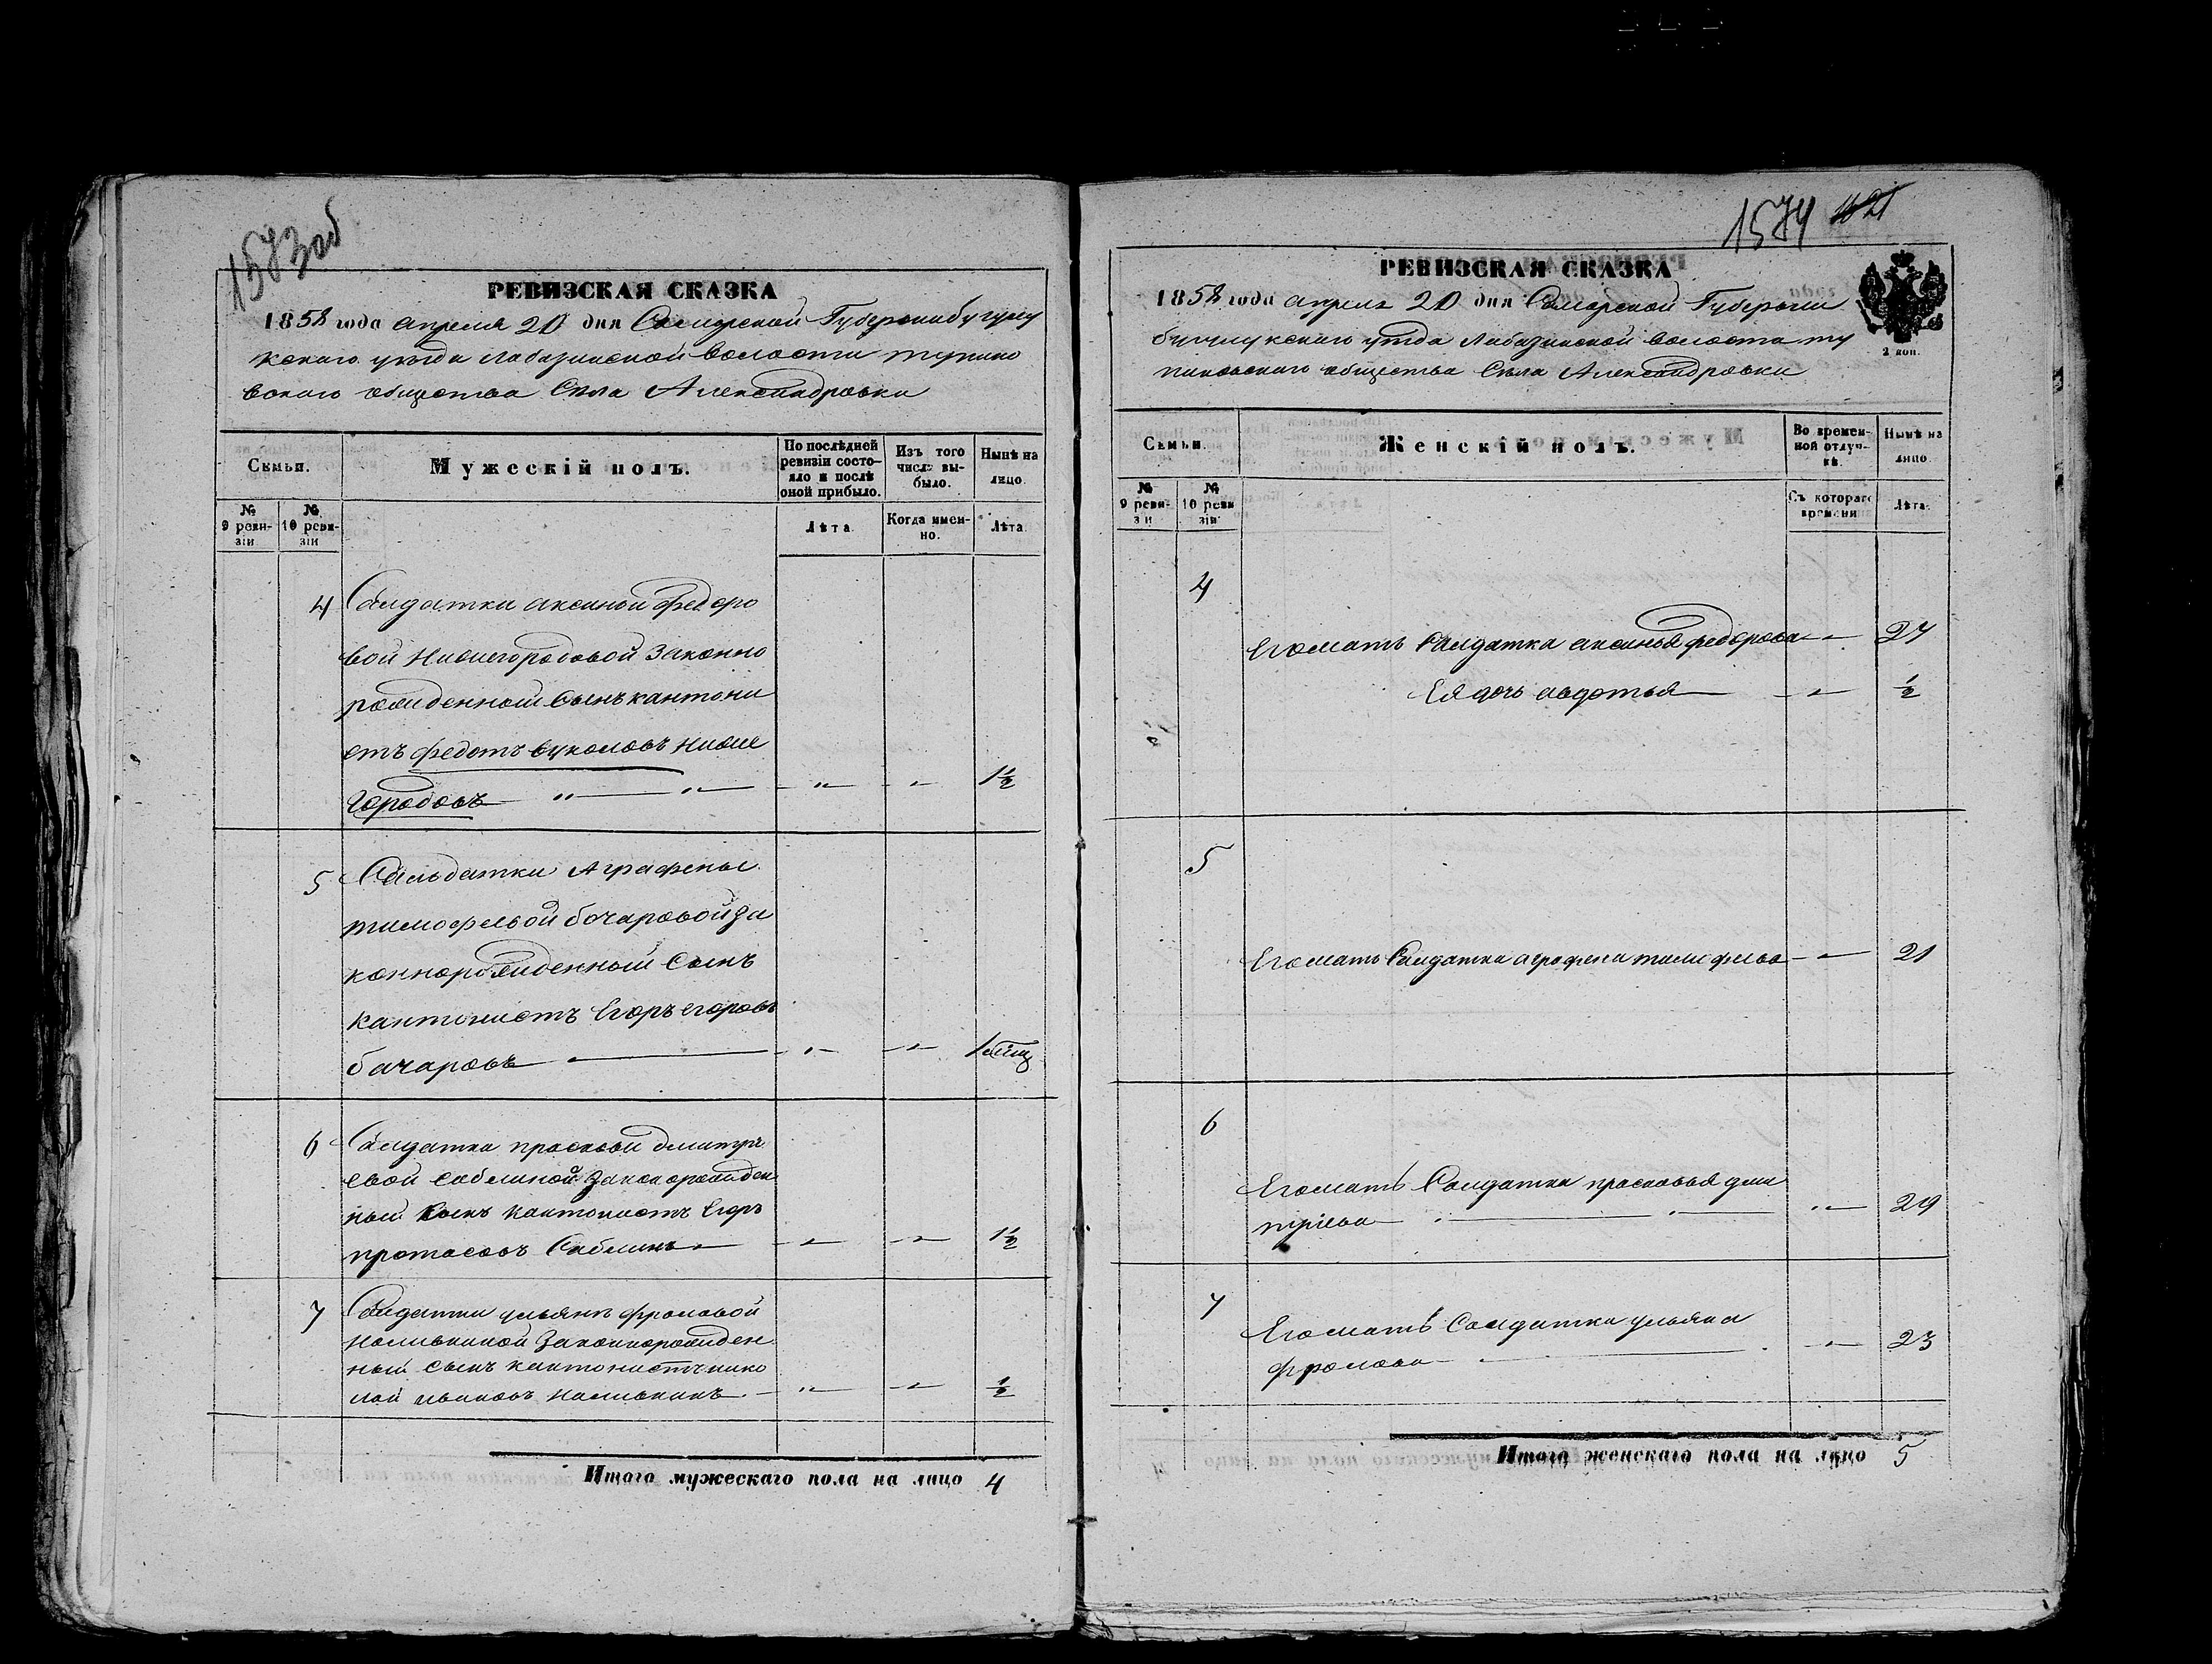 1573 об
РЕВИЗСКАЯ СКАЗКА
1858 года апреля 20 дня Самарской Губернии бугурус
кскаго уезда Лабазинской волости тупико
вскаго общества Села Александровки
Семьи.
Мужескій полъ.
По послѣдней ревизіи состояло и послѣ оной прибыло.
Изъ того числа выбыло.
Нынѣ на лицо.
№ 9 ревизіи
№ 10 ревизіи
Лѣта.
Когда именно.
Лѣта
4 Салдатки аксиньи федоро
вой Нижегородовой Законно
рожденной Сынъ кантони
стъ федотъ вуколовъ Ниже
городовъ 1½
5 Сальдатки Аграфены
тимофевой бочаровой за
коннорожденный Сынъ
кантонистъ Егоръ егоровъ
бачаровъ 1 мѣсяц
6 Салдатка прасковьи дмитрі
евой саблиной Законорожден
ный Сынъ кантонистъ Егоръ
протасовъ Саблинъ 1½
7 Салдатки ульянѣ фроловой
Наливкиной Законнорожден
ный сынъ кантонистъ нико
лай ивановъ Наливкинъ ½
Итого мужескаго пола на лицо 4
1574
РЕВИЗСКАЯ СКАЗКА
1858 года апреля 20 дня Самарской Губернии
бузулукскаго уезда Лабазинской волости ту
пиковскаго общества Села Александровки
2 коп.
Семьи.
Женскій полъ.
Во временной отлучкѣ.
Нынѣ на лицо.
№ 9 ревизіи
№ 10 ревизіи
Съ котораго времени
Лѣта.
4
Его мать Салдатка аксинья федорова 27
Ея дочь авдотья ½
5
Его мать Салдатка аграфена тимофева 21
6
Его мать Салдатка прасковья дми
тріева 29
7
Его мать Салдатка ульяна
фролова 23
Итого женскаго пола на лицо 5